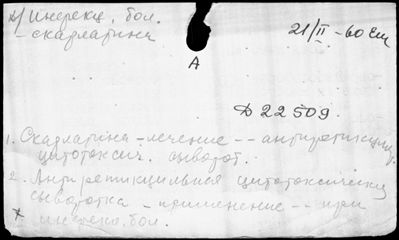 Инфекц. бол.
- скарлатина
21/II - 60
А
Д 22509.
1. Скарлатина - лечение -- антиретикул.
цитотоксич. сыворот.
2. Антиретикулярная цитотоксическая
сыворотка - применение -- при
инфекц. бол.